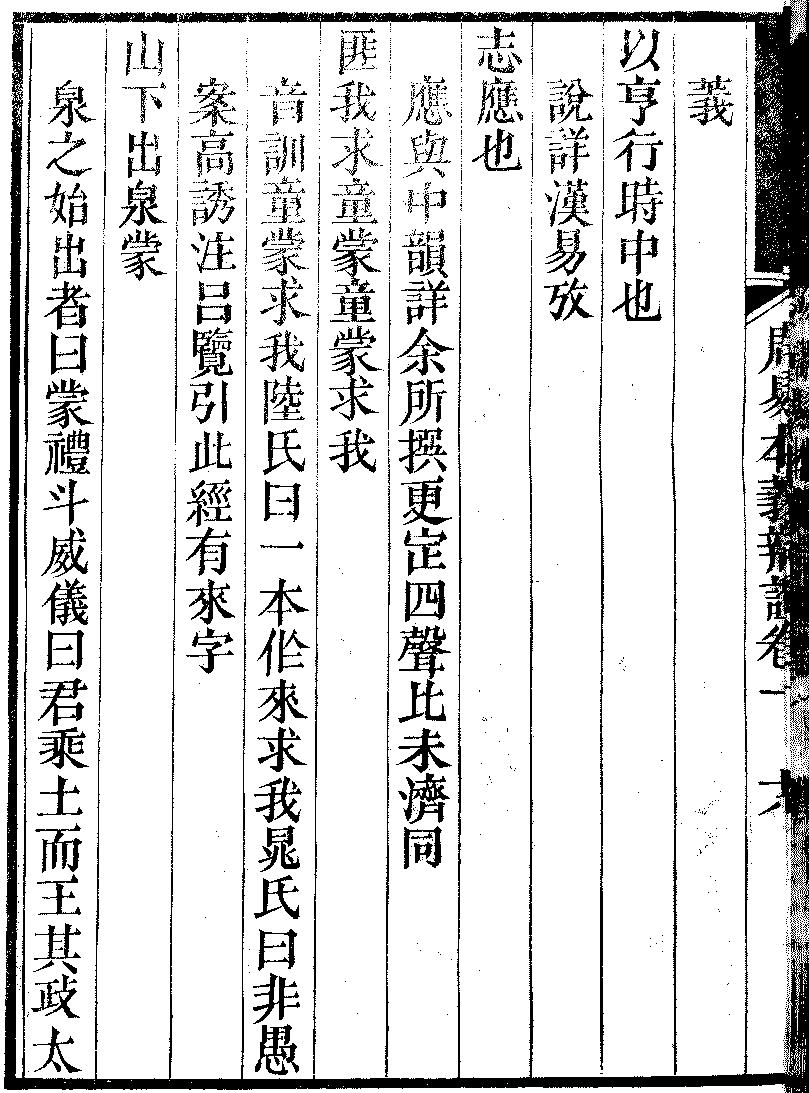 周易本義辨證卷一 六
義
以亨行時中也
說詳漢易攷
志應也
應與中韻詳余所撰更定四聲比未濟同
匪我求童蒙童蒙求我
音訓童蒙求我陸氏曰一本作來求我晁氏曰非愚
案高誘注吕覽引此經有來字
山下出泉蒙
泉之始出者曰蒙禮斗威儀曰君乘土而王其政太